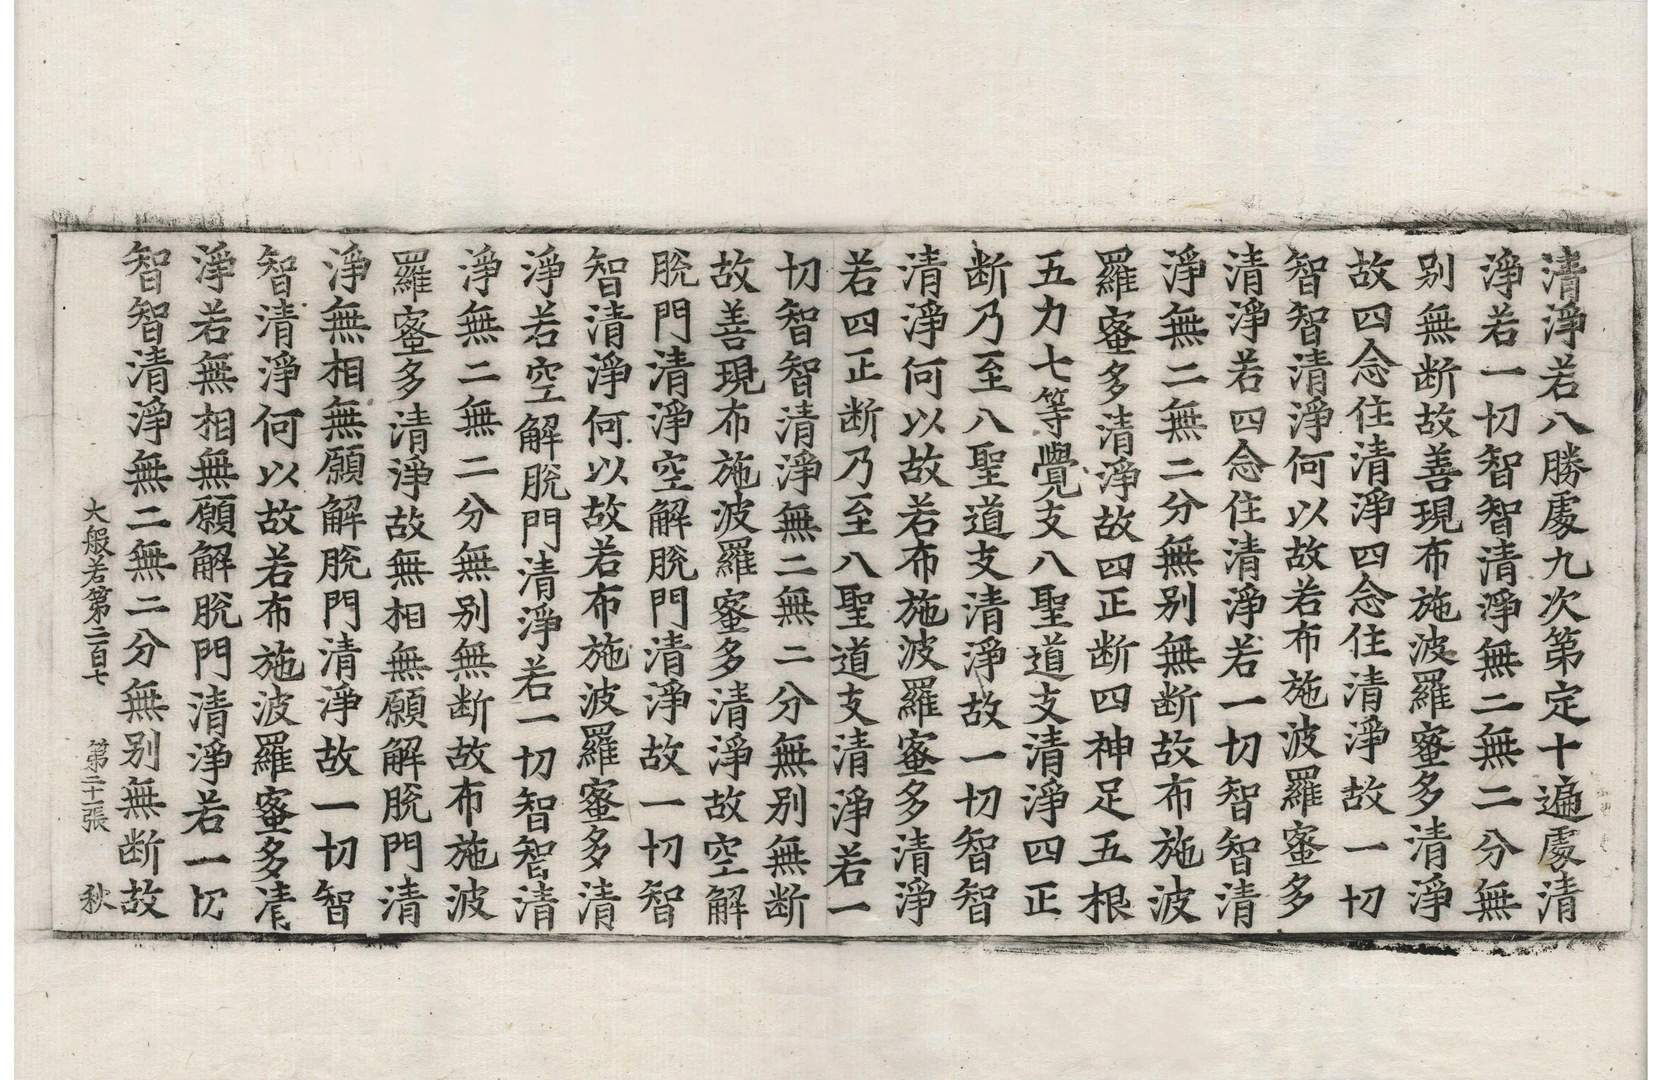 清淨若八勝處九次第定十遍處清
淨若一切智智清淨無二無二分無
別無断故善現布施波羅蜜多清淨
故四念住清淨四念住清淨故一切
智智清淨何以故若布施波羅蜜多
清淨若四念住清淨若一切智智清
淨無二無二分無别無断故布施波
羅蜜多清淨故四正断四神足五根
五力七等覺支八聖道支清淨四正
断乃至八聖道支清淨故一切智智
清淨何以故若布施波羅蜜多清淨
若四正断乃至八聖道支清淨若一
切智智清淨無二無二分無别無断
故善現布施波羅蜜多清淨故空解
脫門清淨空解脫門清淨故一切智
智清淨何以故若布施波羅蜜多清
淨若空解脫門清淨若一切智智清
淨無二無二分無别無断故布施波
羅蜜多清淨故無相無願解脫門清
淨無相無願解脫門清淨故一切智
智清淨何以故若布施波羅蜜多清
淨若無相無願解脫門清淨若一切
智智清淨無二無二分無别無断故
大般若第二百七 第二十一張 秋